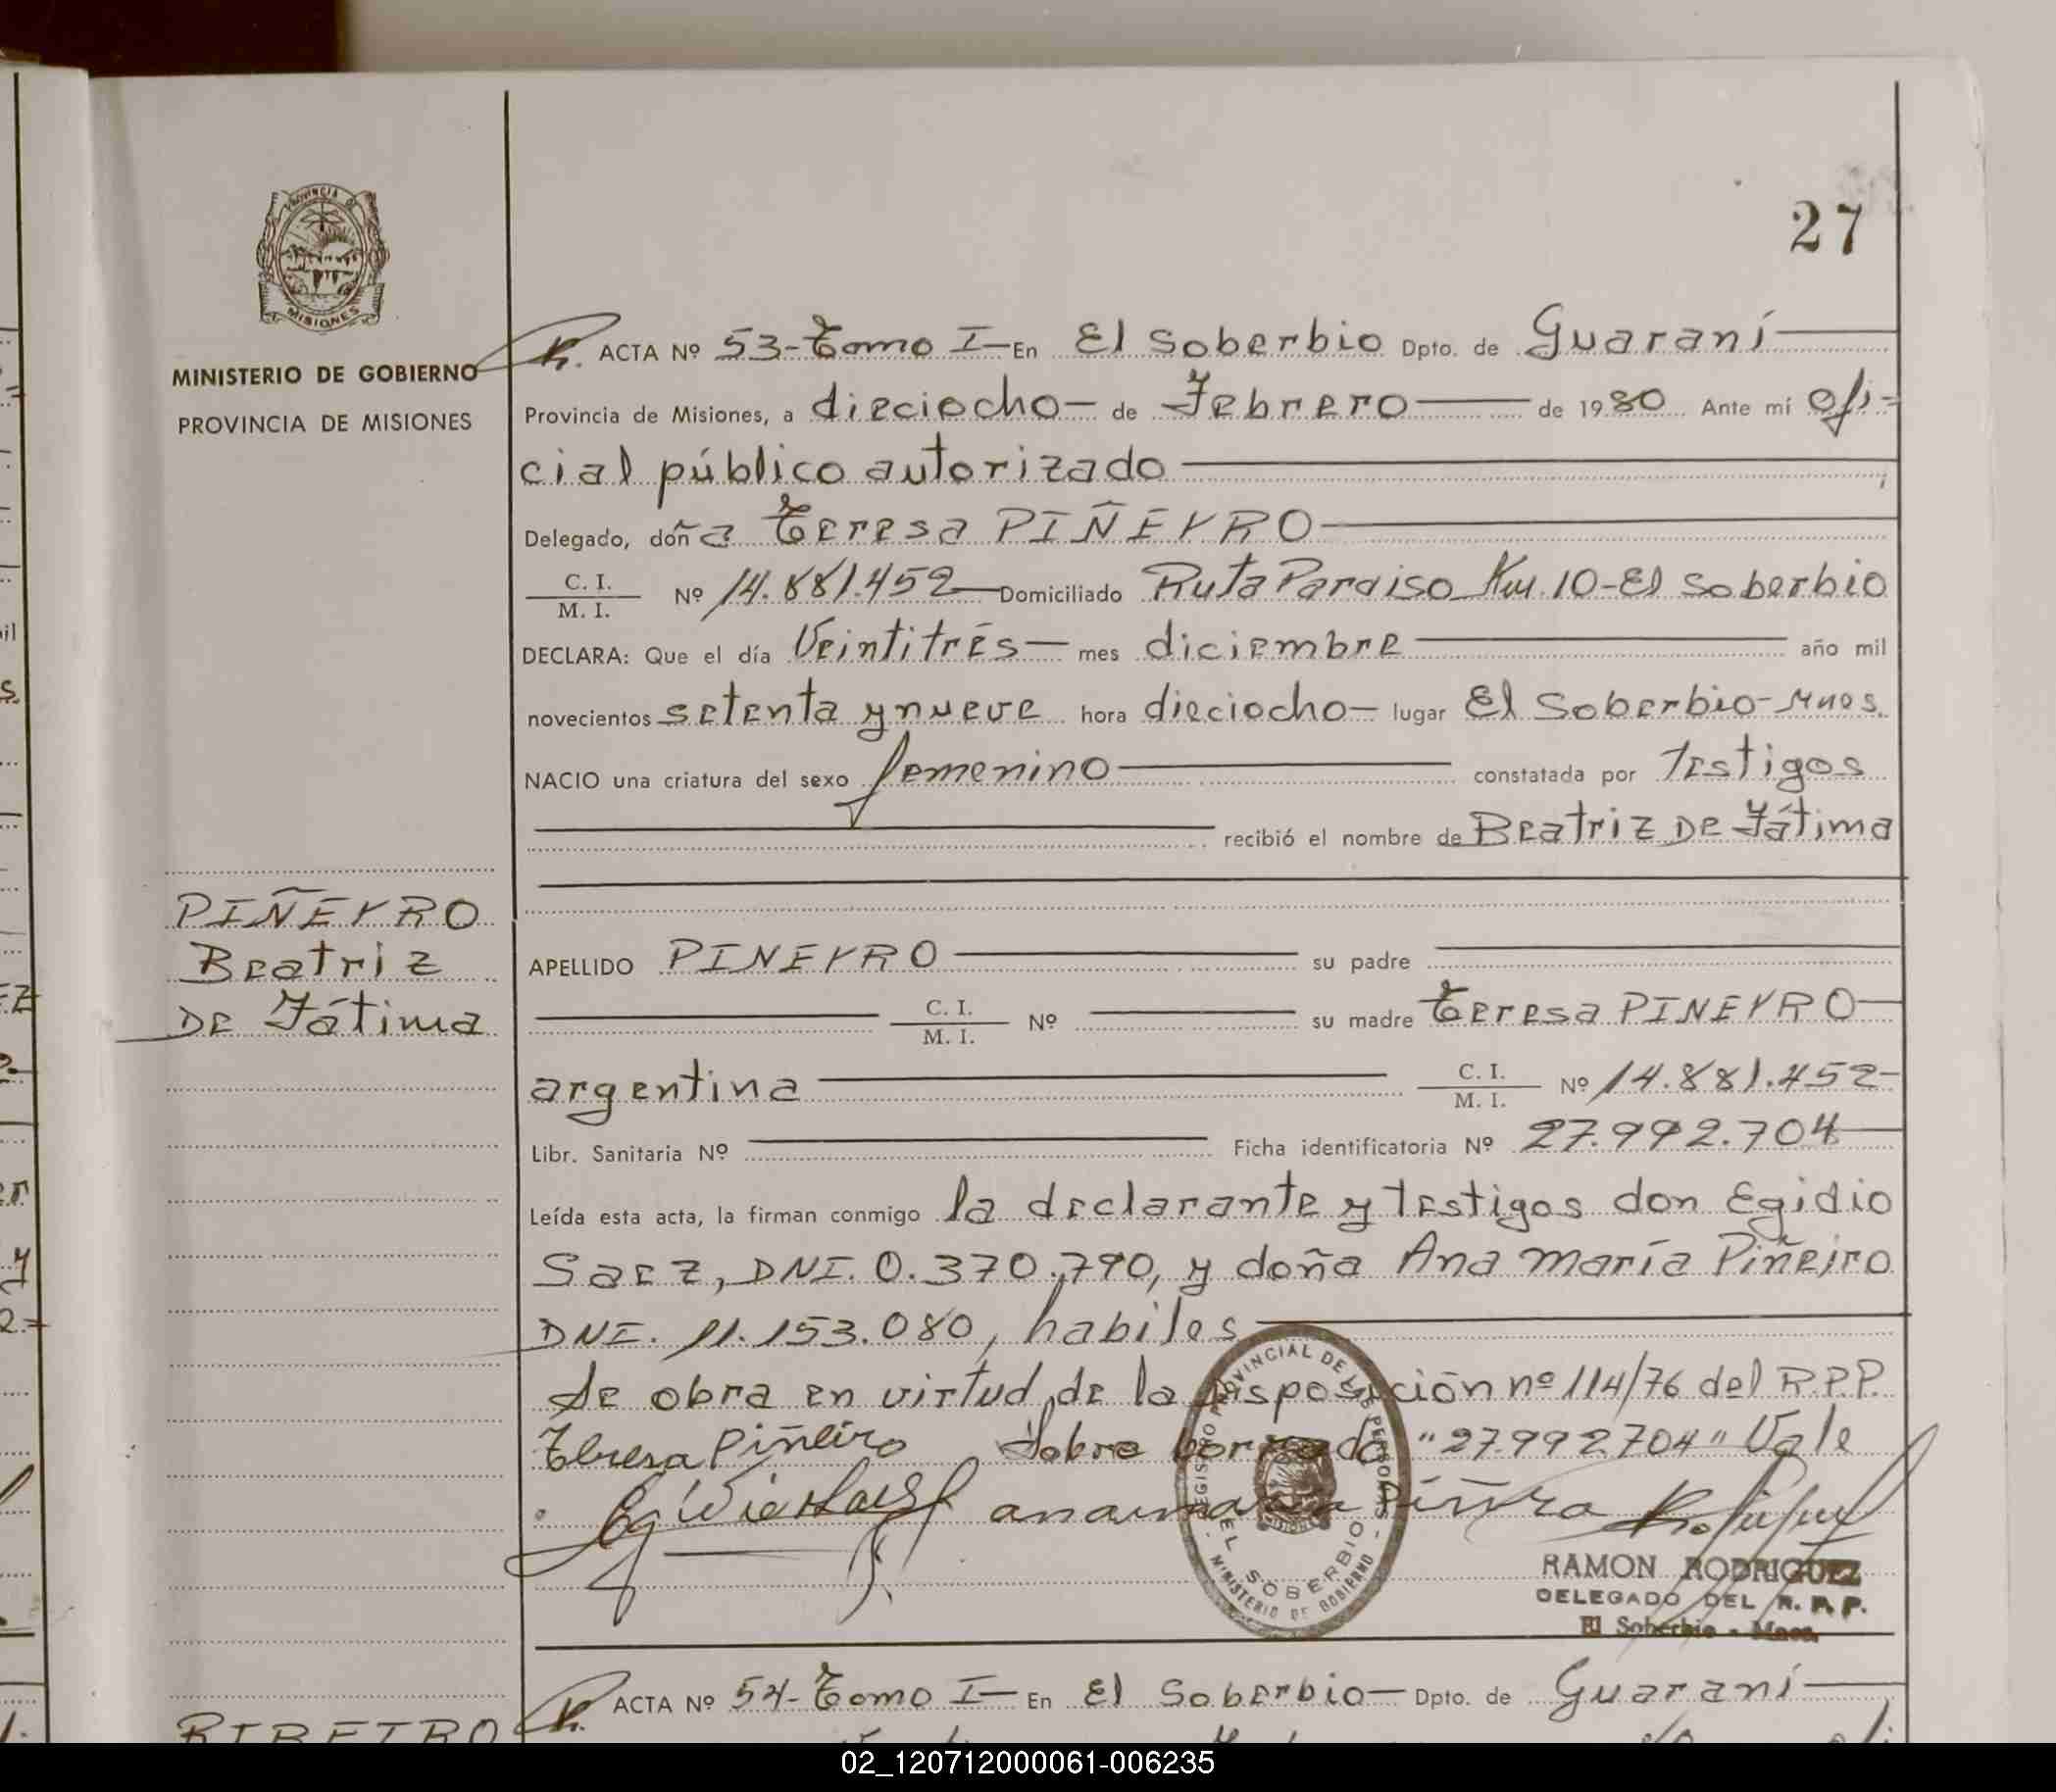 27
PROVINCIA DE
MISIONES
MINISTERIO DE GOBIERNO
PROVINCIA DE MISIONES
ACTA Nº 53-Tomo I- En El Soberbio Dpto. de Guaraní
Provincia de Misiones, a dieciocho- de Febrero de 1980 Ante mí ofi-
cial público autorizado
Delegado, doña Teresa PIÑEYRO
C. I.
M. I. Nº 14.881.452 Domiciliado Ruta Paraiso Km. 10-El Soberbio
DECLARA: Que el día Veintitrés- mes diciembre año mil
novecientos setenta y nueve hora dieciocho- lugar El Soberbio-Mnes.
NACIO una criatura del sexo femenino constatada por Testigos
recibió el nombre de Beatriz DE Fátima
PIÑEYRO
Beatriz
DE Fátima
APELLIDO PINEYRO su padre
C. I.
M. I. Nº su madre Teresa PINEYRO
argentina C. I.
M. I. Nº 14.881.452-
Libr. Sanitaria Nº Ficha identificatoria Nº 27.992.704
Leída esta acta, la firman conmigo la declarante y testigos don Egidio
Saez, DNI. 0.370.790, y doña Ana María Piñeiro
DNI. 11.153.080, habiles
Se obra en virtud de la disposición nº 114/76 del R.P.P.
Teresa Piñeiro Sobre borrado "27.992.704" Vale
REGISTRO PROVINCIAL DE LAS PERSONAS
EL SOBERBIO
MINISTERIO DE GOBIERNO
RAMON RODRIGUEZ
DELEGADO DEL R. P. P.
El Soberbio - Mnes.
ACTA Nº 54-Tomo I- En El Soberbio- Dpto. de Guaraní
RIBEIRO
02_120712000061-006235